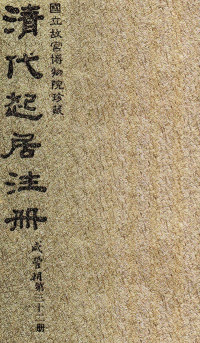 國立故宮博物院珍藏
清代起居注冊
咸豐朝第三十二冊